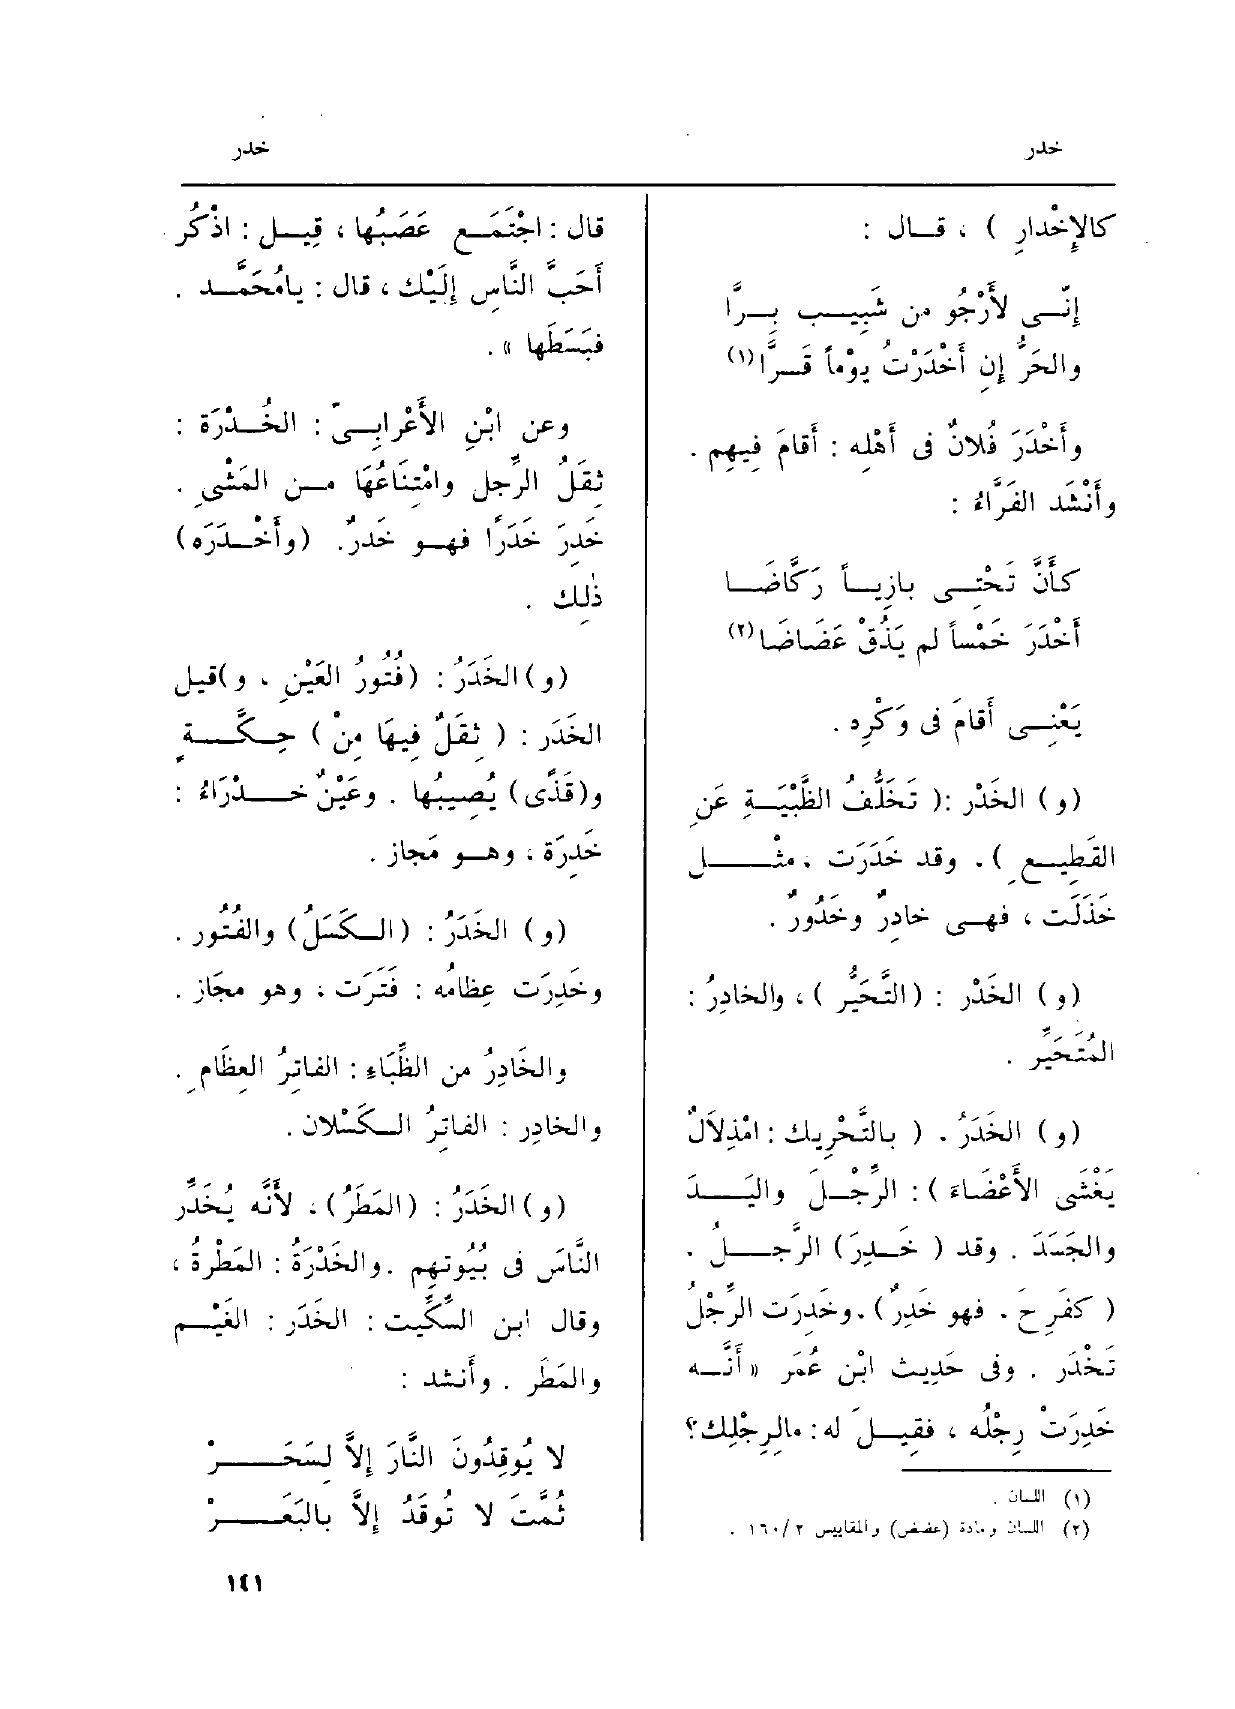 خدر
خدر
كالإِخْدارِ ) ، قــال :
إنّــى لأَرْجُو من شَبِيــب بِــرَّا
والحَرُّ إن أَخْدَرْتُ يوْماً قَــرَّا(١)
وأَخْدَرَ فُلانٌ فى أَهْلِه : أَقامَ فِيهِم .
وأَنْشَد الفَرّاءُ :
كأَنَّ تَحْتِــى بازِيــاً رَكَّاضَــا
أَخْدَرَ خَمْساً لم يَذُقْ عَضَاضَا(٢)
يَعْنِــى أَقامَ فى وَكْرِه .
(و) الخَدْر :( تَخَلُّفُ الظَّبْيَــةِ عَنِ
القَطِيــعِ ) . وقد خَدَرَت ، مثْــل
خَذَلَت ، فهــى خادِرٌ وخَدُورٌ .
(و) الخَدْر : (التَّحَيُّر ) ، والخادِرُ :
المُتَحَيِّر .
(و) الخَدَرُ . ( بالتَّحْرِيك : امْذِلَالٌ
يَغْشَى الأَعْضَاءَ ) : الرِّجْــلَ واليَــدَ
والجَسَدَ . وقد ( خَــدِرَ) الرَّجــلُ .
( كفَرِحَ . فهو خَدِرٌ) .وخَدِرَت الرِّجْلُ
تَخْدَر . وفى حَدِيث ابْنِ عُمَر « أَنَّــه
خَدِرَتْ رِجْلُه ، فقِيــلَ له : مالِرِجْلِك؟
(١) اللسان .
(٢) اللسان ومادة (عضض) والمقاييس ١٦٠/٢ .
قال : اجْتَمَــع عَصَبُها ، قِيــل : اذْكُر
أَحَبَّ النَّاسِ إِلَيْك ، قال : يامُحَمَّــد .
فبَسَطَها » .
وعن ابْنِ الأَعْرابِــىّ : الخُــدْرَة :
ثِقَلُ الرِّجل وامْتِنَاعُهَا مــن المَشْىِ .
خَدِرَ خَدَرًا فهــو خَدِرٌ. (وأَخْــدَرَه)
ذٰلِك .
(و) الخَدَرُ : (فُتُورُ العَيْنِ ، و)قيل
الخَدَر : ( ثِقَلٌ فِيهَا مِنْ ) حِــكَّــةٍ
و(قَذًى) يُصِيبُها . وعَيْنٌ خَــدْرَاءُ :
خَدِرَة ، وهــو مَجاز .
(و) الخَدَرُ : (الــكَسَلُ) والفُتُور .
وخَدِرَت عِظامُه : فَتَرَت ، وهو مجَاز .
والخَادِرُ من الظِّبَاء : الفاتِرُ العِظَامِ .
والخادِر : الفاتِرُ الــكَسْلان .
(و) الخَدَرُ : (المَطَرُ) ، لأَنَّه يُخَدِّر
النَّاسَ فى بُيُوتِهِم .والخَدْرَةُ : المَطْرةُ ،
وقال ابن السِّكِّيت : الخَدَر : الغَيْــم
والمَطَر . وأَنشد :
لا يُوقِدُونَ النَّارَ إلاَّ لِسَحَــرْ
ثُمَّتَ لا تُوقَدُ إلاَّ بالبَعَــرْ
١٤١